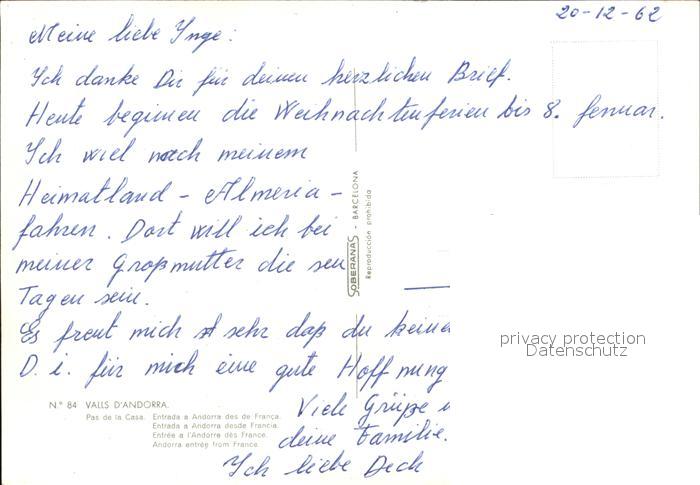 20-12-62
Meine liebe Ynge:
Ich danke Dir für deinen herzlichen Brief.
Heute beginnen die Weihnachtenferien bis 8. fenuar.
Ich wiel nach meinem
Heimatland - Almeria -
fahren. Dort will ich bei
meiner Großmutter die sen
Tagen sein.
Es freut mich sehr daß du keine
D. i. für mich eine gute Hoffnung
Viele Grüße
deine Familie.
Ich liebe Dich
SOBERANAS - BARCELONA
Reproducción prohibida
privacy protection
Datenschutz
N.º 84 VALLS D'ANDORRA.
Pas de la Casa. Entrada a Andorra des de França.
Entrada a Andorra desde Francia.
Entrée a l'Andorre dès France.
Andorra entrée from France.